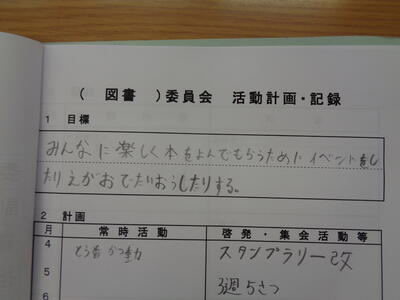 ( 図書 )委員会 活動計画・記録
1 目標
みんなに楽しく本をよんでもらうためにイベントをし
たりえがおでたいおうしたりする。
2 計画
月 常時活動 啓発・集会活動等
4 とう番かつ動 スタンプラリー改
5 3週5さつ
6